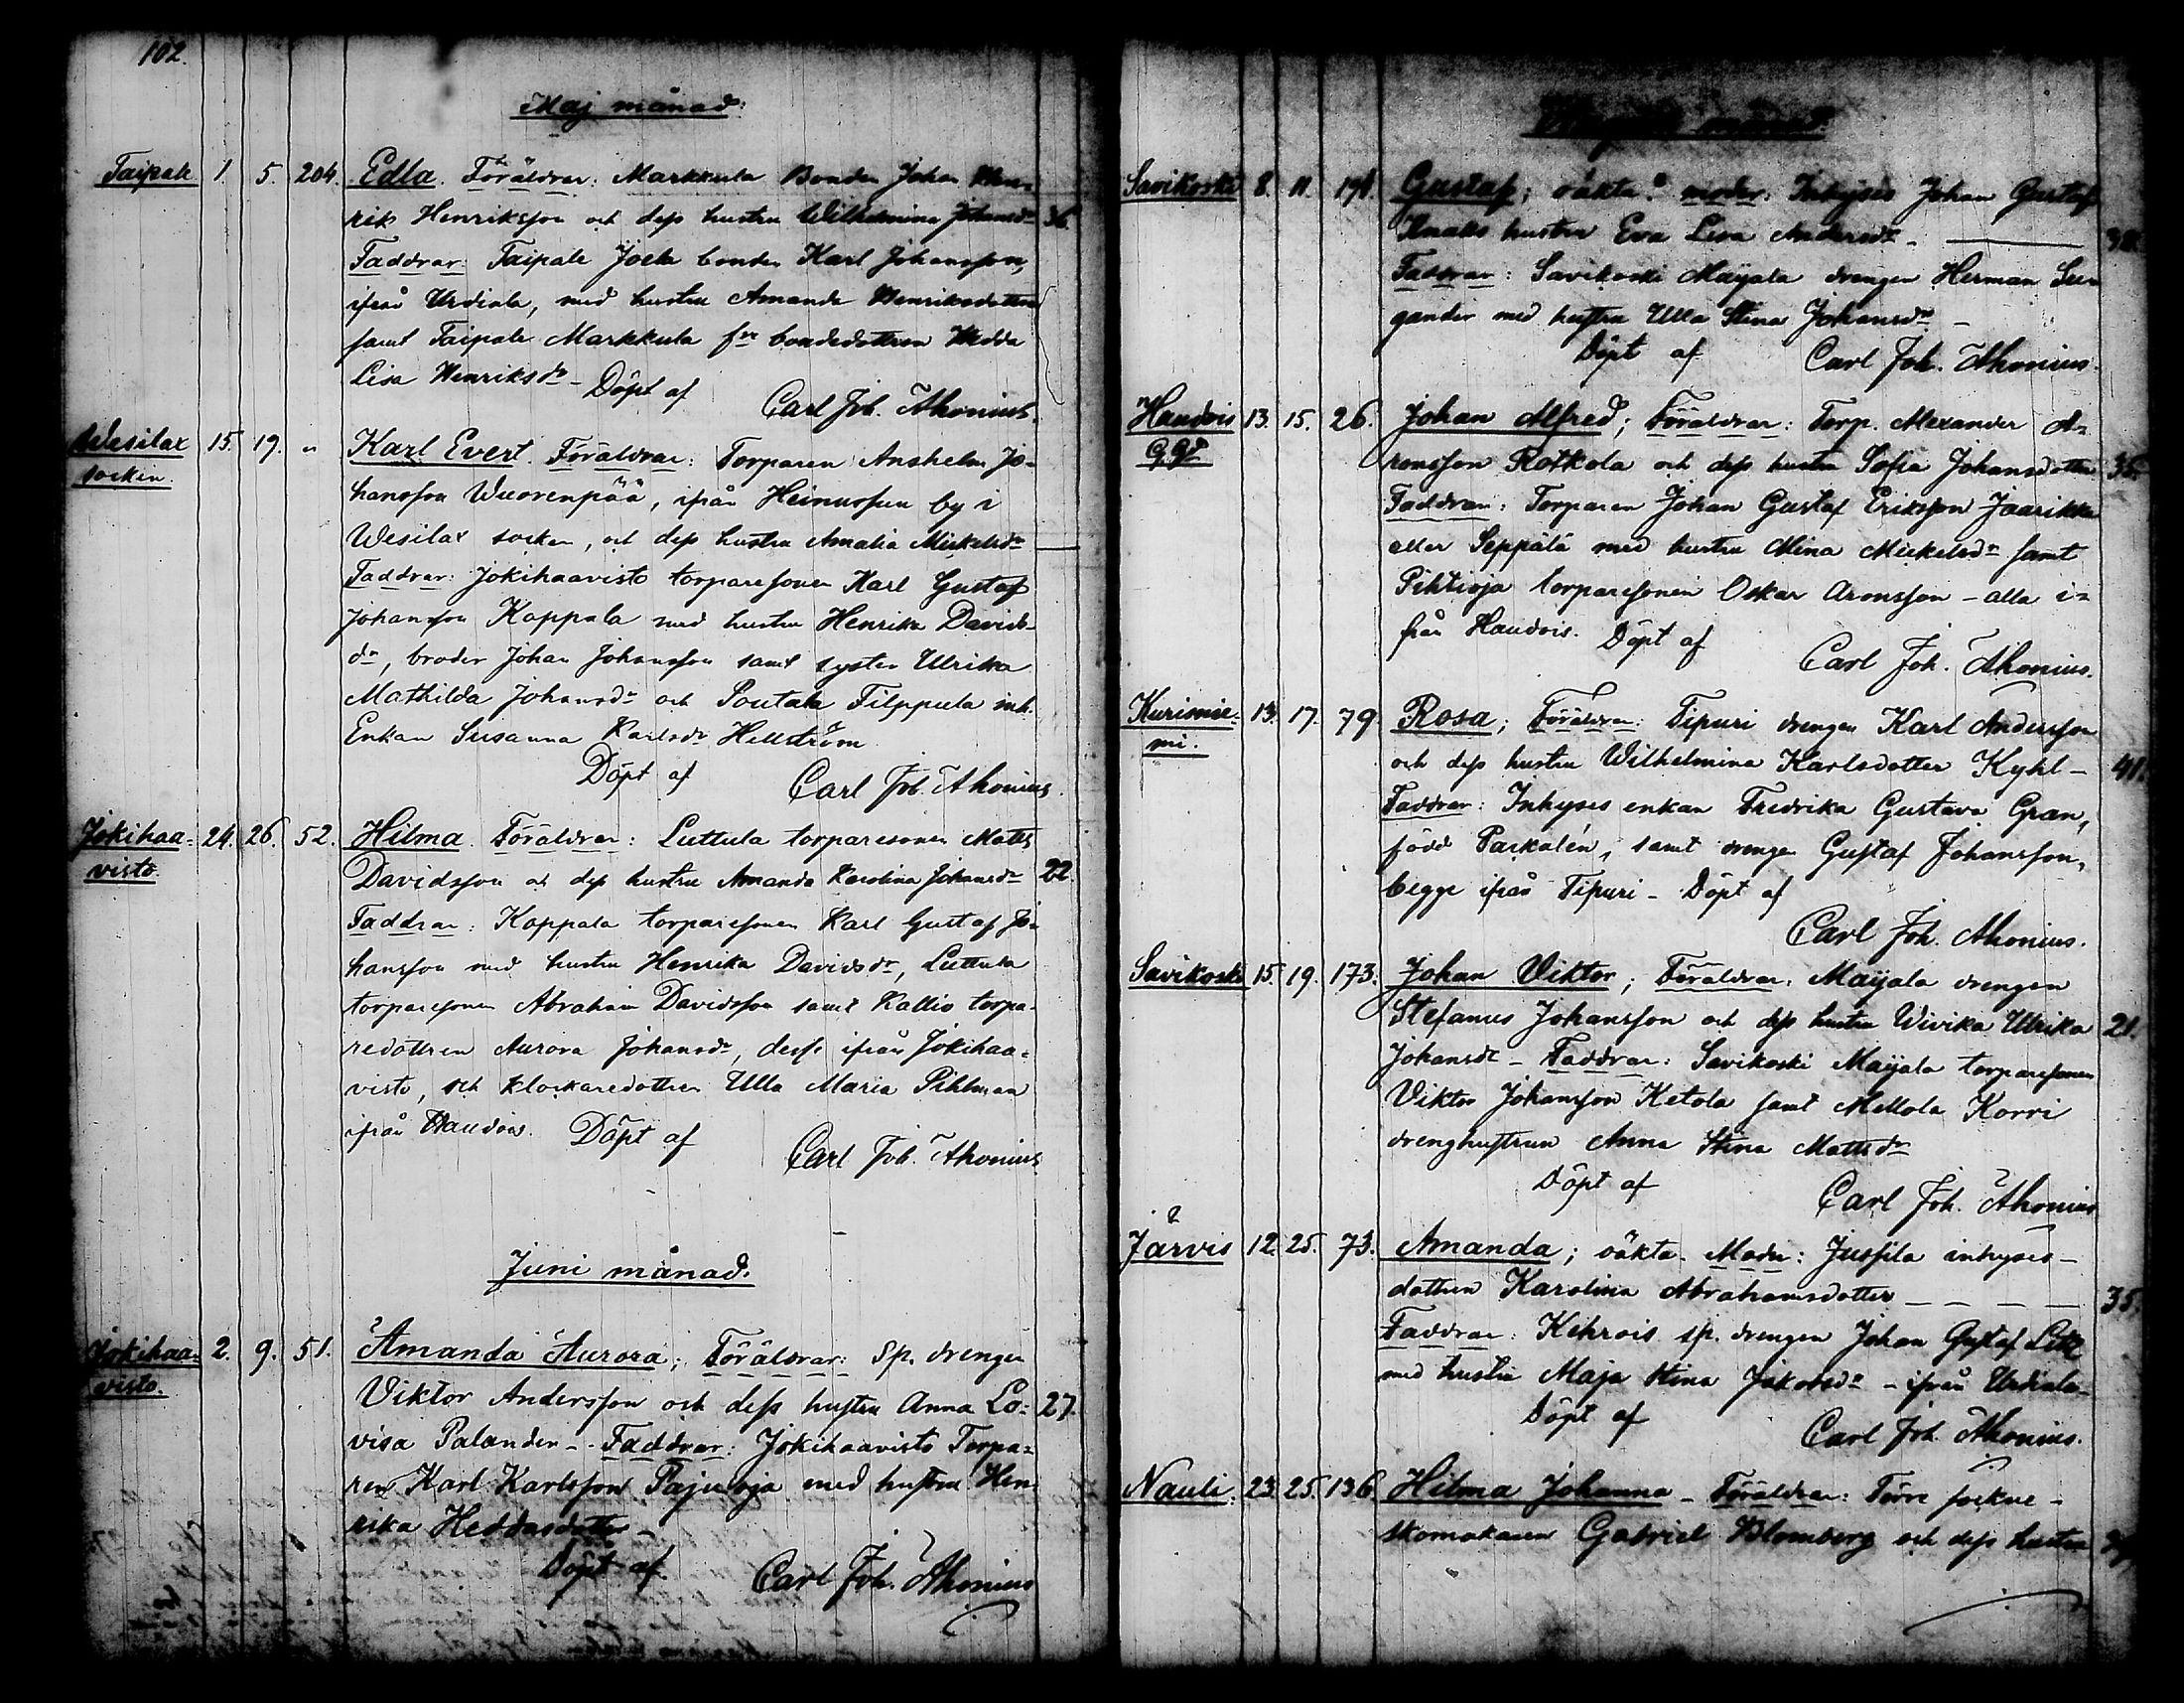 102.
Maj månad:
Taipale 1. 5. 204. Edla. Föräldrar: Markkula Bonden Johan Hen-
rik Henriksson och dess hustru Wilhelmina Johansdr 36.
Faddrar: Taipale Joela bonden Karl Johansson,
ifrån Urdiala, med hustru Amanda Henriksdotter
samt Taipale Markkula fre bondedottren Hedda
Lisa Henriksdr - Döpt af
Carl Joh. Ahonius.
Wesilax 15. 19. " Karl Evert. Föräldrar: Torparen Anshelm Jo-
socken. hansson Wuorenpää, ifrån Heinussuu by i
Wesilax socken, och dess hustru Amalia Mickelsdr —
Faddrar: Jokihaavisto torparesonen Karl Gustaf
Johansson Kappala med hustru Henrika Davids-
dr, broder Johan Johansson samt syster Ulrika
Mathilda Johansdr och Poutala Filppula inh.
Enkan Susanna Karlsdr Hellström
Döpt af
Carl Joh. Ahonius.
Jokihaa- 24. 26. 52. Hilma. Föräldrar: Luttula torparesonen Matts
visto Davidsson och dess hustru Amanda Karolina Johansdr 22.
Faddrar: Kappala torparesonen Karl Gustaf Jo-
hansson med hustru Henrika Davidsdr, Luttula
torparesonen Abraham Davidsson samt Kallio torpa-
redottren Aurora Johansdr, desse ifrån Jokihaa-
visto, och klockaredottren Ulla Maria Pihlman
ifrån Haudois. Döpt af
Carl Joh. Ahonius
Juni månad.
Jokihaa- 2. 9. 51. Amanda Aurora; Föräldrar: Sp. drengen
visto. Viktor Andersson och dess hustru Anna Lo- 27.
visa Palander -. Faddrar: Jokihaavisto Torpa-
ren Karl Karlsson Pajuoja med hustru Hen-
rika Heddasdotter -
Döpt af
Carl Joh. Ahonius
månad.
Savikoski 8. 11. 191. Gustaf; oäkta. moder: Inhyses Johan Gustaf
hustru Eva Lisa Andersdr - 38.
Faddrar: Savikoski Maijala drengen Herman
gander med hustru Ulla Stina Johansdr -
Döpt af Carl Joh. Ahonius.
Haudois 13. 15. 26. Johan Alfred; Föräldrar: Torp. Alexander A-
Ggd ronsson Rotkola och dess hustru Sofia Johansdotter 35.
Faddrar: Torparen Johan Gustaf Eriksson Jaarikka
eller Seppälä med hustru Mina Mickelsdr samt
Pihtioja torparesonen Oskar Aronsson - alla i-
från Haudois. Döpt af
Carl Joh. Ahonius.
Kurisnie- 13. 17. 79. Rosa; Föräldrar: Tipuri drengen Karl Andersson
mi. och dess hustru Wilhelmina Karlsdotter Kyhl - 41.
Faddrar: Inhyses enkan Fredrika Gustava Gran,
född Paskalén, samt drengen Gustaf Johansson,
begge ifrån Tipuri - Döpt af
Carl Joh. Ahonius.
Savikoski 15. 19. 173. Johan Viktor; Föräldrar: Maijala drengen
Stefanus Johansson och dess hustru Wivika Ulrika 21.
Johansdr - Faddrar: Savikoski Maijala torparesonen
Viktor Johansson Ketola samt Mellola Korri
drenghustrun Anna Stina Mattsdr
Döpt af
Carl Joh. Ahonius
Järvis 12. 25. 73. Amanda; oäkta. Moder: Jussila inhyses-
dottren Karolina Abrahamsdotter - - - - 35.
Faddrar: Kehrois sp. drengen Johan Gustaf
med hustru Maja Stina Jakobsdr - ifrån Urdiala -
Döpt af
Carl Joh. Ahonius.
Nauli. 23. 25. 136. Hilma Johanna - Föräldrar: Torre sockne-
skomakaren Gabriel Blomberg och dess hustru